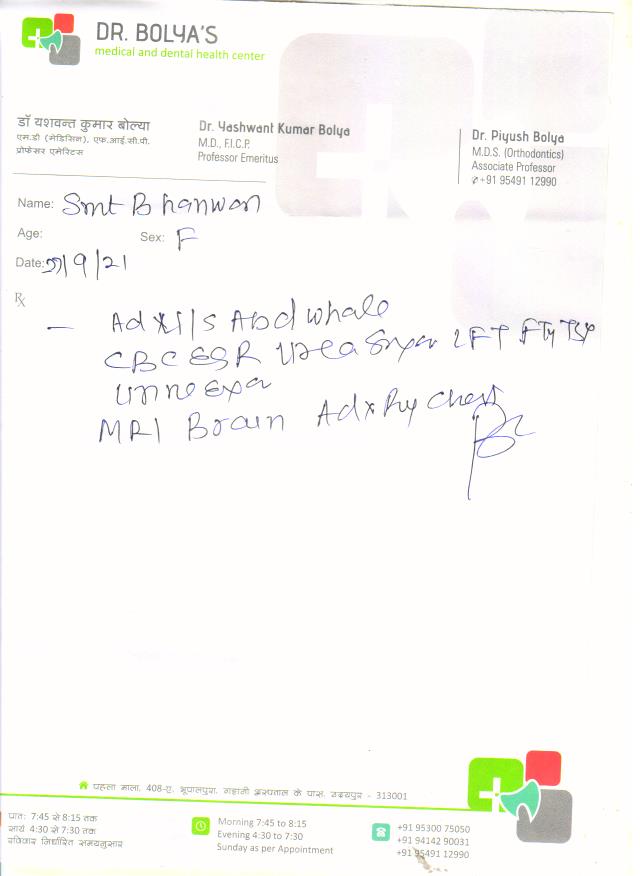 DR. BOLYA'S
medical and dental health center
डॉ यशवन्त कुमार बोल्या
एम.डी (मेडिसिन), एफ.आई.सी.पी.
प्रोफेसर एमेरिटस
Dr. Yashwant Kumar Bolya
M.D., F.I.C.P.
Professor Emeritus
Dr. Piyush Bolya
M.D.S. (Orthodontics)
Associate Professor
+91 95491 12990
Name: Smt Bhanwar
Age: Sex: F
Date: /9/21
Rx
- Ad Abd whole
CBC ESR Urea LFT
urine Exa
MRI Brain Ad x Ray Chest
पहला माला, 408-ए, भूपालपुरा, अस्पताल के पास, उदयपुर - 313001
प्रातः 7:45 से 8:15 तक
सायं 4:30 से 7:30 तक
रविवार निर्धारित समयनुसार
Morning 7:45 to 8:15
Evening 4:30 to 7:30
Sunday as per Appointment
+91 95300 75050
+91 94142 90031
+91 95491 12990